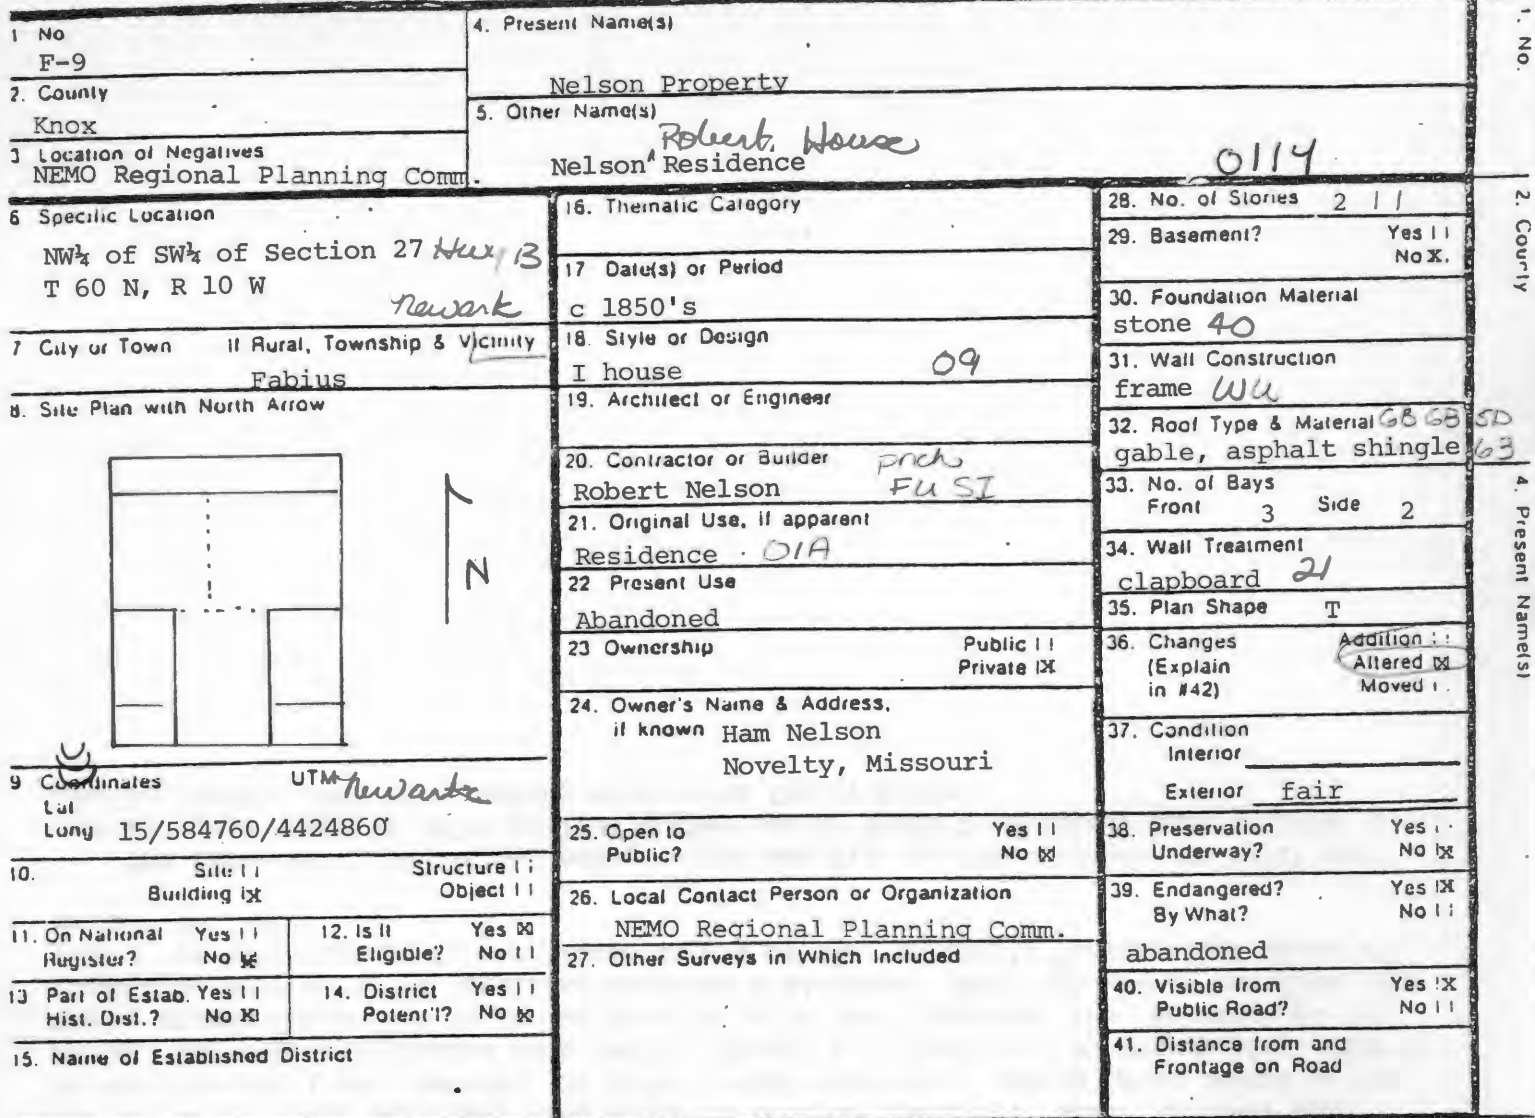 1 No
F-9
2. County
Knox
3 Location of Negatives
NEMO Regional Planning Comm.
4. Present Name(s)
Nelson Property
5. Other Name(s)
Robert House
Nelson Residence
0114
6 Specific Location
NW¼ of SW¼ of Section 27 Hwy B
T 60 N, R 10 W
Newark
7 City or Town If Rural, Township & Vicinity
Fabius
8. Site Plan with North Arrow
N
9 Coordinates UTM Newark
Lat
Long 15/584760/4424860
10. Site
Structure
Building X
Object
11. On National Register? Yes
No X
12. Is It Eligible? Yes X
No
13 Part of Estab. Hist. Dist.? Yes
No X
14. District Potent'l? Yes
No X
15. Name of Established District
16. Thematic Category
17 Date(s) or Period
c 1850's
18. Style or Design
I house 09
19. Architect or Engineer
20. Contractor or Builder
Robert Nelson
FU SI
21. Original Use, if apparent
Residence 01A
22 Present Use
Abandoned
23 Ownership Public
Private X
24. Owner's Name & Address,
if known Ham Nelson
Novelty, Missouri
25. Open to Yes
Public? No X
26. Local Contact Person or Organization
NEMO Regional Planning Comm.
27. Other Surveys in Which Included
28. No. of Stories 2
29. Basement? Yes
No X.
30. Foundation Material
stone 40
31. Wall Construction
frame WU
32. Roof Type & Material GB GB SD
gable, asphalt shingle 63
33. No. of Bays
Front 3 Side 2
34. Wall Treatment
clapboard 21
35. Plan Shape T
36. Changes Addition
(Explain Altered X
in #42) Moved
37. Condition
Interior
Exterior fair
38. Preservation Yes
Underway? No X
39. Endangered? Yes X
By What? No
abandoned
40. Visible from Yes X
Public Road? No
41. Distance from and
Frontage on Road
1. No.
2. County
4. Present Name(s)